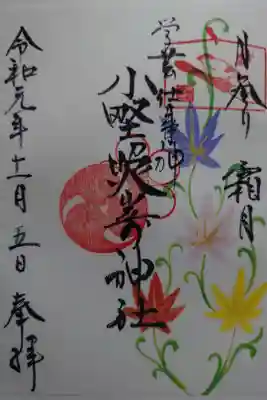 月参り 霜月
学芸仕事神
小野照嵜神社
令和元年十一月五日 奉拝